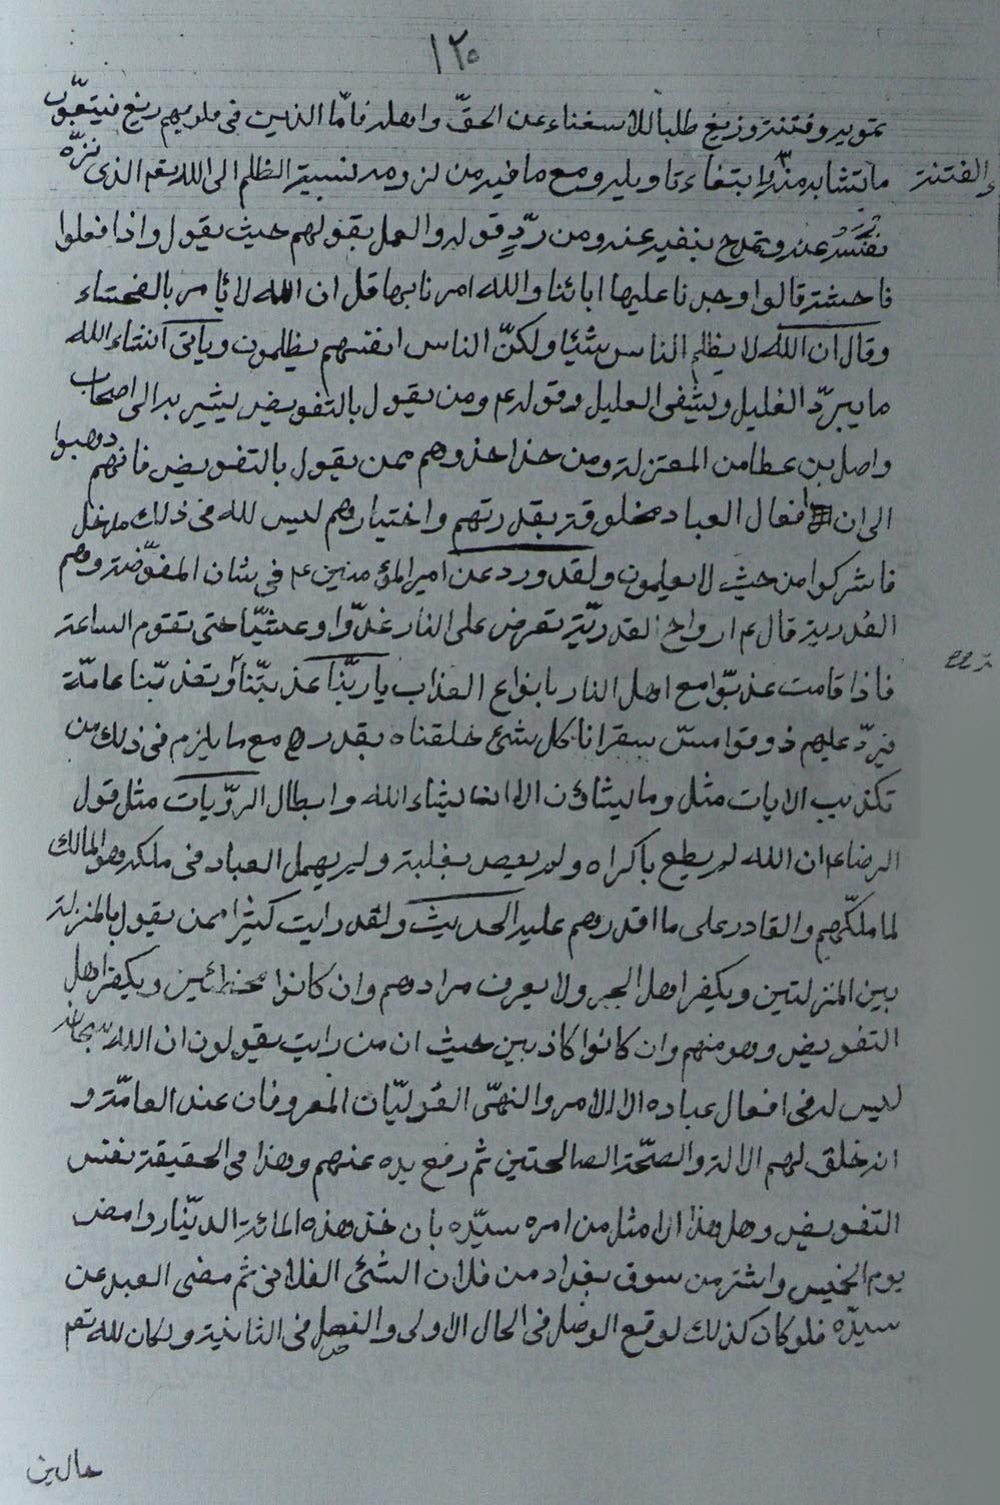 ١٢٥
بتمويه وفتنة وزيغ طلبا للاستغناء عن الحقّ واهله فامّا الذين في قلوبهم زيغ فيتبعون
ما تشابه منه ابتغاء تاويله ومع ما فيه من لزومه نسبة الظلم الى الله تعم الذى نزّه
ء الفتنة
نفسه عنه وتمدح بنفيه عنه ومن ردّ قوله والعمل بقولهم حيث يقول واذا فعلوا
فاحشة قالوا وجدنا عليها ابائنا والله امرنا بها قل ان الله لا يأمر بالفحشاء
وقال ان الله لا يظلم الناس شيئا ولكنّ الناس انفسهم يظلمون وياتى انشاء الله
ما يبرّد الغليل ويشفى العليل وقوله ع ومن يقول بالتفويض يشير به الى اصحاب
واصل بن عطا من المعتزلة ومن حذا حذوهم ممن يقول بالتفويض فانهم ذهبوا
الى ان افعال العباد مخلوقة بقدرتهم واختيارهم ليس لله فى ذلك مدخل
فاشركوا من حيث لا يعلمون ولقد ورد عن امير المؤمنين ع فى شان المفوّضة وهم
القدرية قال ع ارواح القدريّة تعرض على النار غدّوا وعشيّا حتى تقوم الساعة
فاذا قامت عذبّوا مع اهل النار بانواع العذاب يا ربّنا عذبتّنا وتعذبّنا عامّة
فيردّ عليهم ذوقوا مسّ سقر انا كل شئ خلقناه بقدر ه مع ما يلزم فى ذلك من
تكذيب الايات مثل وما يشاؤن الا ان يشاء الله وابطال الروّيات مثل قول
الرضا ع ان الله لم يطع باكراه ولم يعص بغلبة ولم يهمل العباد فى ملكه وهو المالك
لما ملكّهم والقادر على ما اقدرهم عليه الحديث ولقد رايت كثيرا ممن يقول بالمنزلة
بين المنزلتين ويكفر اهل الجبر ولا يعرف مرادهم وان كانوا مخطئين ويكفر اهل
التفويض وهو منهم وان كانوا كاذبين حيث ان من رايت يقولون ان الله سبحانه
ليس له فى افعال عباده الا الامر والنهّى القوليّان المعروفان عند العامّة و
انه خلق لهم الالة والصحّة الصالحتين ثم رفع يده عنهم وهذا فى الحقيقة نفس
التفويض وهل هذا الا مثل من امره سيّده بان خذ هذه المائة الدينّار وامض
يوم الخيس واشتر من سوق بغداد من فلان الشئ الفلانى ثم مضى العبد عن
سيدّه فلو كان كذلك لوقع الوصل فى الحال الاولى والفصل فى الثانية ولكان لله تعم
حالين